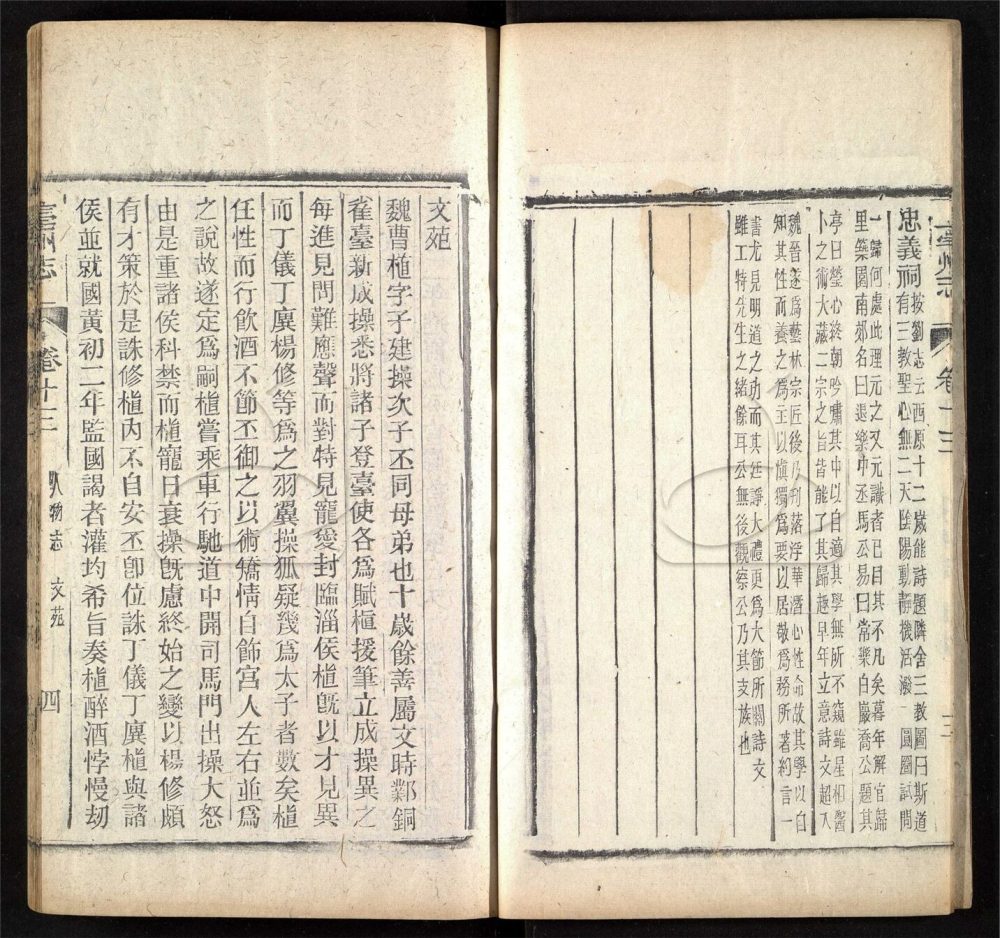 亳州志
卷十三
三
忠義祠
按劉志云西原十二歲能詩題隣舍三教圖曰斯道
有三教聖心無二天陰陽動靜機活潑一圓圖試問
一歸何處此理元之又元識者已目其不凡矣暮年解官歸
里築園南郊名曰退樂中丞馬公易曰常樂白巖喬公題其
亭曰瑩心終朝吟嘯其中以自適其學無所不窺雖星相醫
卜之術大藏二宗之旨皆能了其歸趣早年立意詩文超入
魏晉遂爲藝林宗匠後乃刋落浮華潛心性命故其學以自
知其性而養之爲主以愼獨爲要以居敬爲務所著約言一
書尤見明道之功而其廷諍大禮更爲大節所關詩文
雖工特先生之緒餘耳公無後觀察公乃其支族也
文苑
魏曹植字子建操次子丕同母弟也十歲餘善屬文時鄴銅
雀臺新成操悉將諸子登臺使各爲賦植援筆立成操異之
每進見問難應聲而對特見寵愛封臨淄侯植旣以才見異
而丁儀丁廙楊修等爲之羽翼操狐疑幾爲太子者數矣植
任性而行飲酒不節丕御之以術矯情自飾宮人左右並爲
之說故遂定爲嗣植嘗乘車行馳道中開司馬門出操大怒
由是重諸侯科禁而植寵日衰操旣慮終始之變以楊修頗
有才策於是誅修植內不自安丕卽位誅丁儀丁廙植與諸
侯並就國黃初二年監國謁者灌均希旨奏植醉酒悖慢劫
亳州志
卷十三
人物志
文苑
四